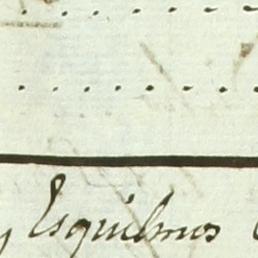 y Esquilmos